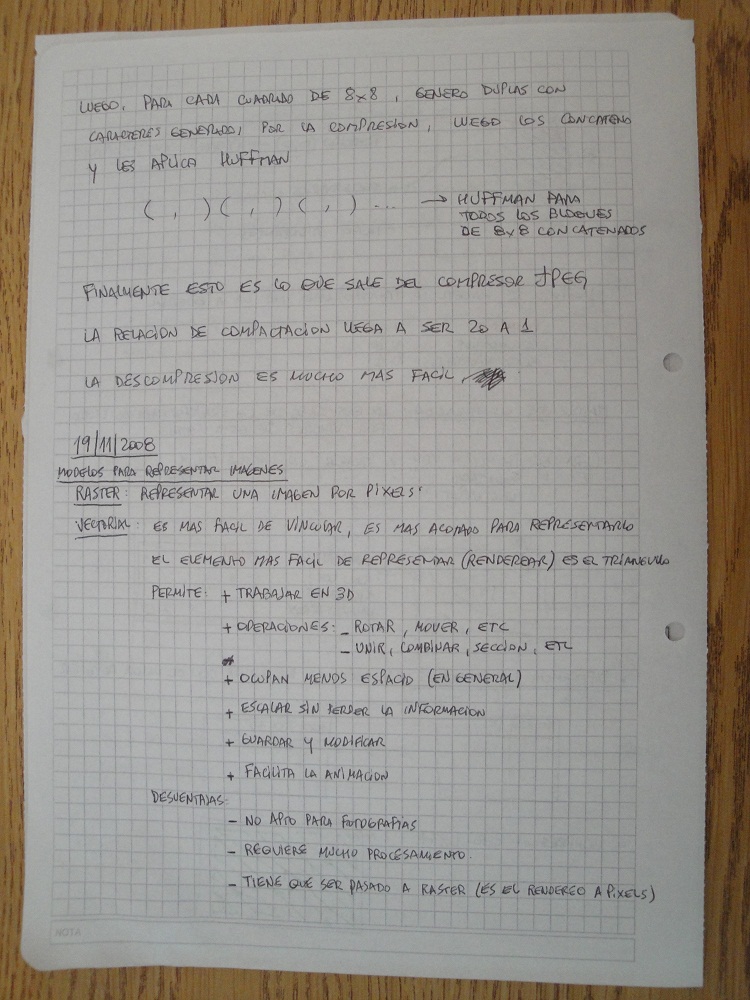 LUEGO, PARA CADA CUADRADO DE 8x8, GENERO DUPLAS CON
CARACTERES GENERADOS POR LA COMPRESION, LUEGO LOS CONCATENO
Y LES APLICA HUFFMAN
( , ) ( , ) ( , ) ... → HUFFMAN PARA
TODOS LOS BLOQUES
DE 8x8 CONCATENADOS
FINALMENTE ESTO ES LO QUE SALE DEL COMPRESOR JPEG
LA RELACION DE COMPACTACION LLEGA A SER 20 A 1
LA DESCOMPRESION ES MUCHO MAS FACIL
19/11/2008
MODELOS PARA REPRESENTAR IMAGENES
RASTER: REPRESENTAR UNA IMAGEN POR PIXELS.
VECTORIAL: ES MAS FACIL DE VINCULAR, ES MAS ACOTADO PARA REPRESENTARLO
EL ELEMENTO MAS FACIL DE REPRESENTAR (RENDEREAR) ES EL TRIANGULO
PERMITE: + TRABAJAR EN 3D
+ OPERACIONES: - ROTAR, MOVER, ETC
- UNIR, COMBINAR, SECCION, ETC
+ OCUPAN MENOS ESPACIO (EN GENERAL)
+ ESCALAR SIN PERDER LA INFORMACION
+ GUARDAR Y MODIFICAR
+ FACILITA LA ANIMACION
DESVENTAJAS:
- NO APTO PARA FOTOGRAFIAS
- REQUIERE MUCHO PROCESAMIENTO.
- TIENE QUE SER PASADO A RASTER (ES EL RENDEREO A PIXELS)
NOTA